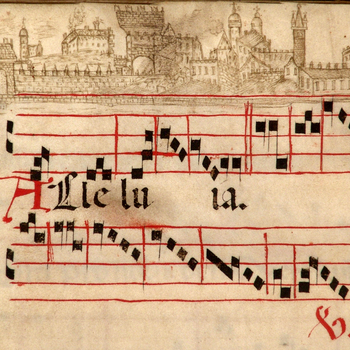 ALle lu ia.
℣.